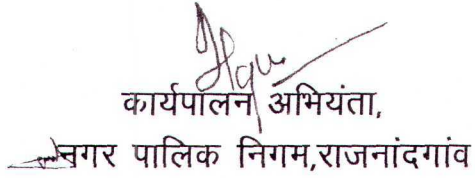 कार्यपालन अभियंता,
नगर पालिक निगम,राजनांदगांव